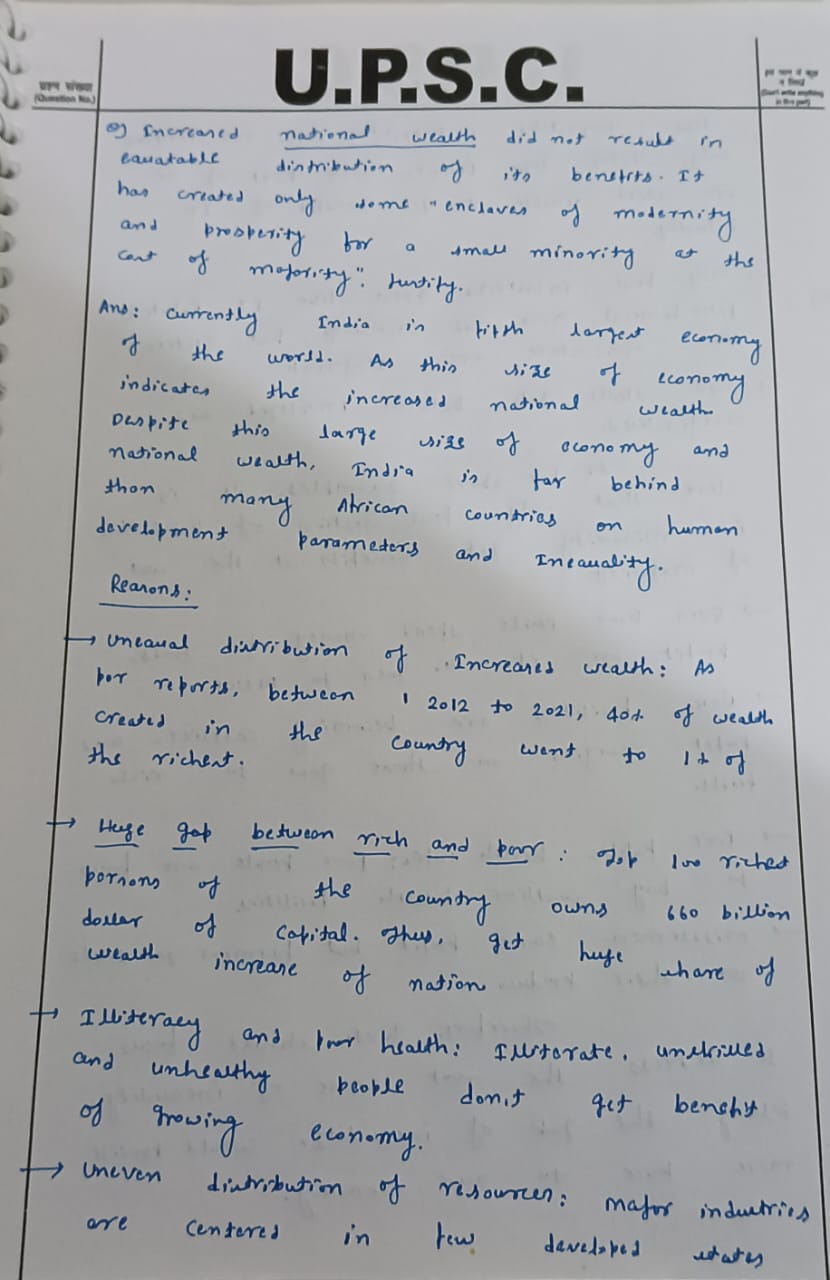 U.P.S.C.
प्रश्न संख्या
(Question No.)
इस भाग में कुछ
न लिखें
(Don't write anything
in this part)
Q) Increased national wealth did not result in
equatable distribution of its benefits. It
has created only some "enclaves of modernity
and prosperity for a small minority at the
cost of majority". Justify.
Ans: Currently India is fifth largest economy
of the world. As this size of economy
indicates the increased national wealth.
Despite this large size of economy and
national wealth, India is far behind
than many African countries on human
development parameters and Inequality.
Reasons:
→ Unequal distribution of Increased wealth: As
per reports, between 2012 to 2021, 40% of wealth
created in the country went to 1% of
the richest.
→ Huge gap between rich and poor: Top 100 richest
persons of the country owns 660 billion
dollar of capital. Thus, get huge share of
wealth increase of nation
→ Illiteracy and poor health: Illiterate, unskilled
and unhealthy people don't get benefit
of growing economy.
→ Uneven distribution of resources: Major industries
are centered in few developed states